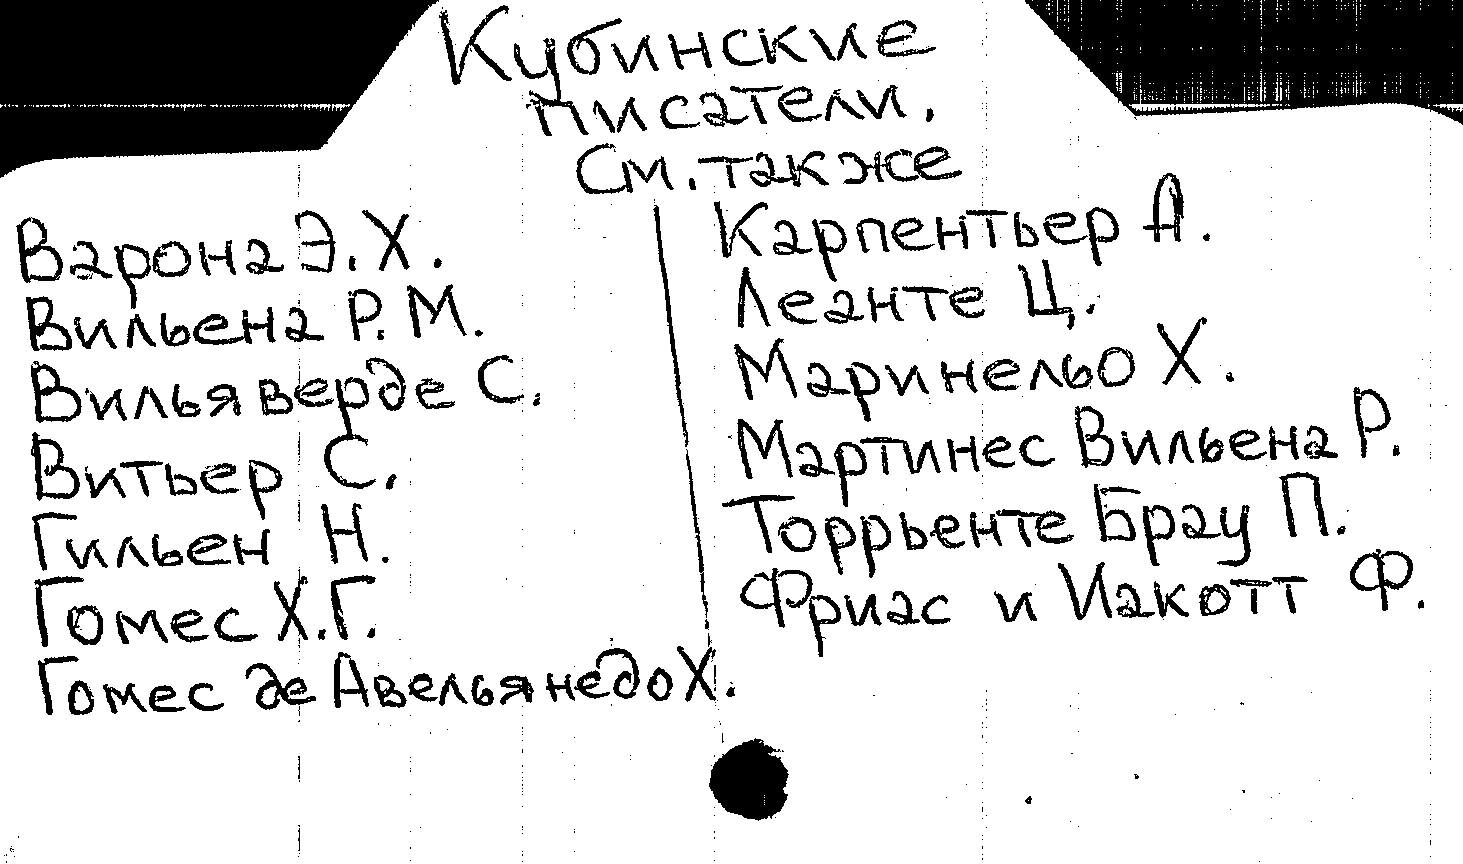 Кубинские
писатели.
См. также
Варона Э. Х.
Вильена Р. М.
Вильяверде С.
Витьер С.
Гильен Н.
Гомес Х. Г.
Гомес де Авельянедо Х.
Карпентьер А.
Леанте Ц.
Маринельо Х.
Мартинес Вильена Р.
Торрьенте Брау П.
Фриас и Иакотт Ф.